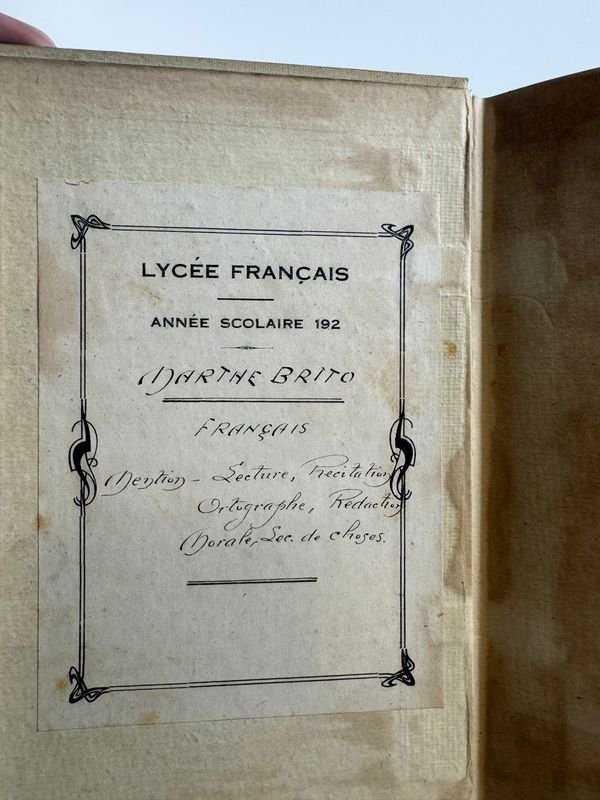 LYCÉE FRANÇAIS
ANNÉE SCOLAIRE 192
MARTHE BRITO
FRANÇAIS
Mention - Lecture, Récitation
Ortographe, Rédaction
Morale, Lec. de choses.